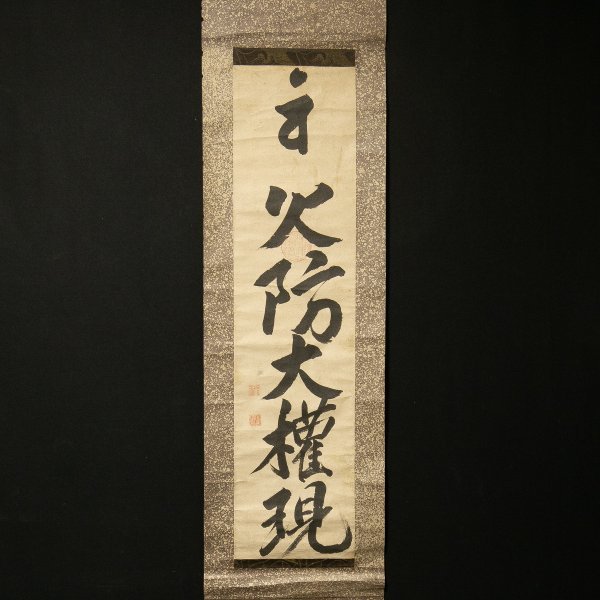 火防大權現